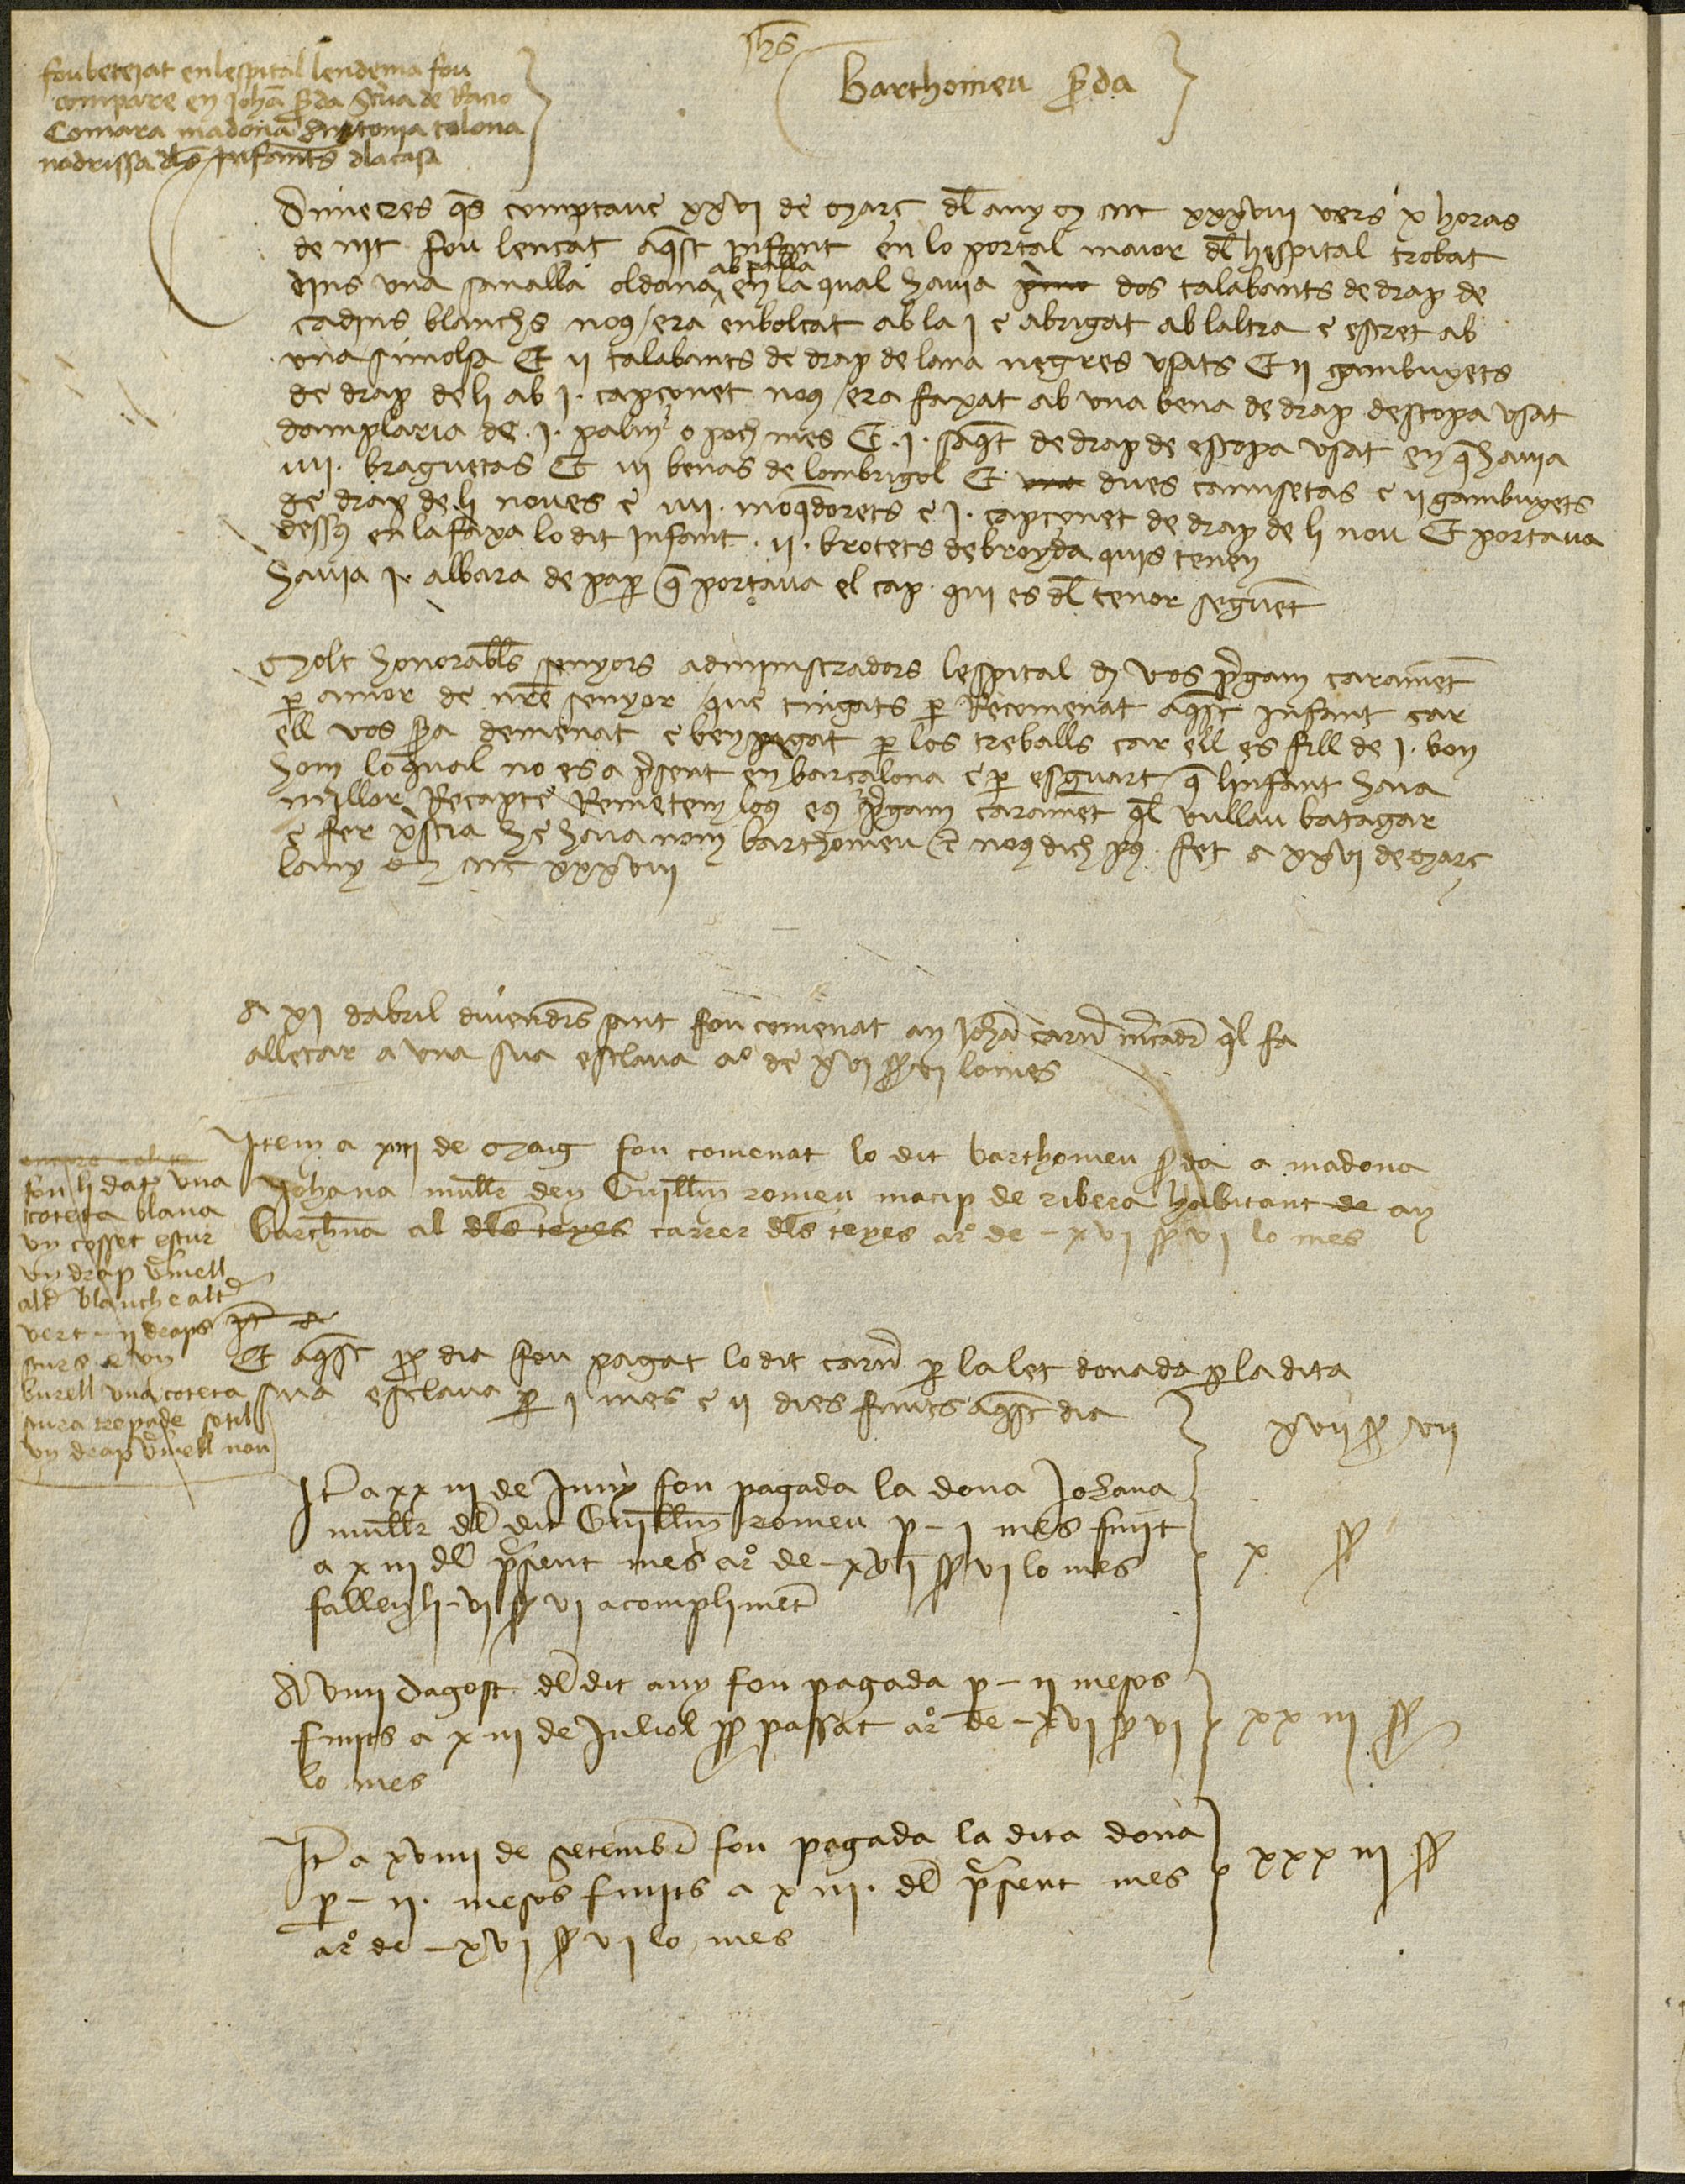 Jhs
Barthomeu Pda
fou betejat en lespital lendema fou
compare en Johā Pda Scrīva de Racio
Comara madona Antonia colona
nodrissa dls Infants dla casa
Dimecres qs comptave xxvi de març dl any M CCCC xxxviii vers x horas
de nit fou lençat aqst infant en lo portal maior dl hespital trobat
dins una sanalla oldana ab palla en la qual havia dos talabants de drap de
cadins blanchs nous era enbolcat ab la i e abrigat ab laltra e estret ab
una simolsa Et ii talabants de drap de lana negres usats Et ii gambuxets
de drap de li ab i. capçonet nou era faxat ab una bena de drap destopa usat
damplaria de .i. palm o poch mes Et .i. saqt de drap de estopa usat en q havia
iiii. braguetas Et iii benas de lombrigol Et una dues camisetas e ii gambuxets
de drap de li noves e iiii. moqdorets e i. capçonet de drap de li nou Et portava
dessus en la faxa lo dit infant .ii. brotets de broyda quis tenen
havia i. albara de pap q portava el cap qui es dl tenor seguēt
Molt honorabls senyors administradors lespital d vos pgam caramēt
p amor de nre senyor que tingats p Recomenat aqst infant car
ell vos sa demenat e ben pagat p los treballs car ell es fill de i. bon
hom lo qual no es a psent en barcalona e p esguart q linfant haia
millor Recapte Remetem lous eus pgam caramēt ql vullau batagar
e fer xstia he haia nom barthomeu e nous dich pus fet a xxvi de març
lany M CCCC xxxviii
A xi dabril divendrs sant fou comenat an Johā carn mcadr ql fa
alletar a una sua esclava ao de xvi ss vi lo mes
Item a xiii de Maig fou comenat lo dit barthomeu Pda a madona
Johana mullr den Guillm romeu macip de ribera habitant de an
barchna al dls teyes carrer dls teyes ao de – xvi ss vi lo mes
fou li dat una
coteta blava
un cosset escur
un drap vmell
altr blanch e altr
vert – ii draps
scurs e un
burell una coteta
scura trepade sotil
un drap vmell nou
Et aqst pp dia fou pagat lo dit carn p la let donada p la dita
sua esclava p i mes e ii dies finits aqst dia xvii ss vii
It a xx iii de Juny fou pagada la dona Johana
mullr dl dit Guillm romeu p – i mes finit
a x iii dl psent mes ao de – xvi ss vi lo mes x ss
fallen li – vi ss vi a compliment
A viiii dagost dl dit any fou pagada p – ii mesos
finits a x iii de Juliol pp passat ao de – xvi ss vi xx iii ss
lo mes
It a xviiii de setembr fou pagada la dita dona
p – ii. mesos finits a x iii. dl psent mes xxx iii ss
ao de – xvi ss vi lo mes